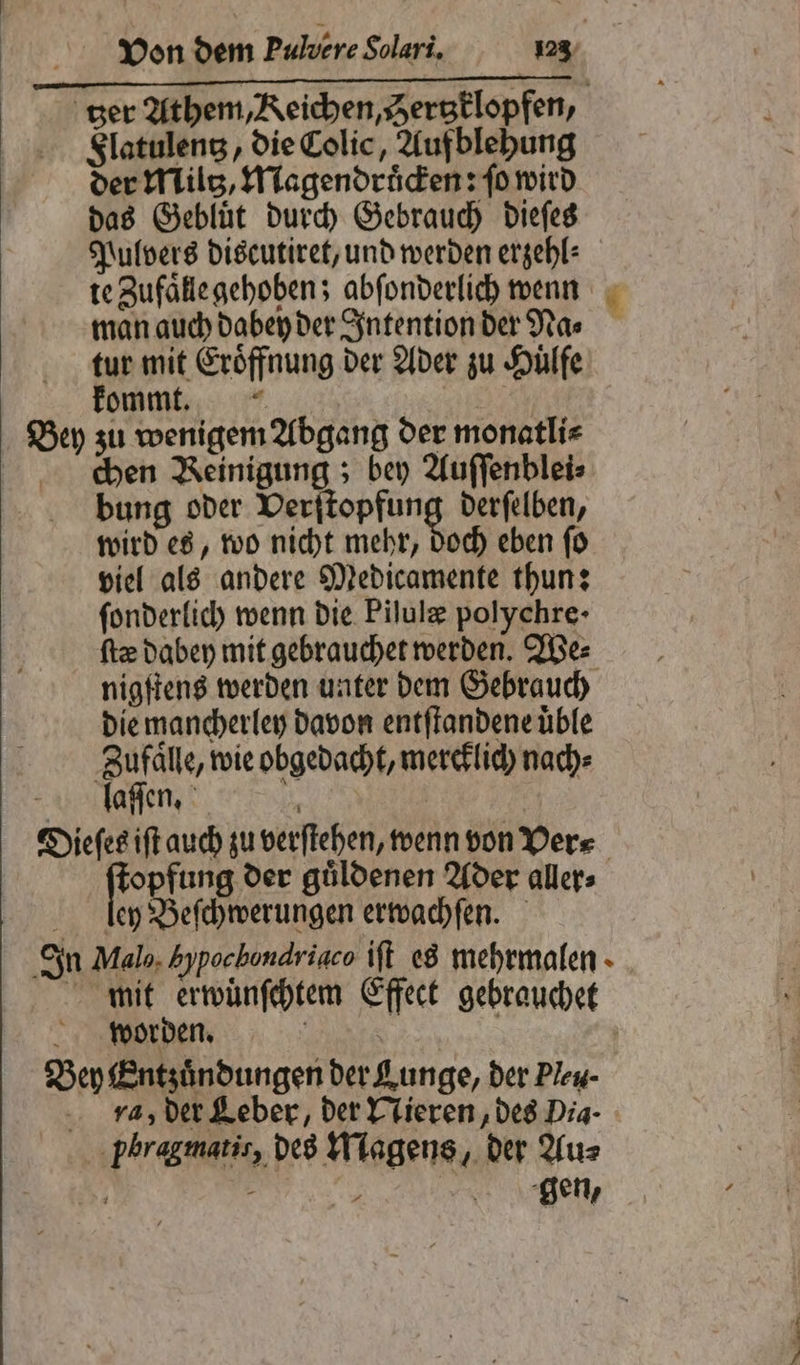 Von dem Pulvere Solari. 123
tzer Athem, Reichen, Hertzklopfen,
Flatulentz, die Colic, Aufblehung
der Miltz, Magendruͤcken: ſo wird
das Gebluͤt durch Gebrauch dieſes
Pulvers discutiret, und werden erzehl-
te Zufaͤlle gehoben; abſonderlich wenn
man auch dabey der Intention der Na-
tur mit Eroͤffnung der Ader zu Huͤlfe
kommt.
Bey zu wenigem Abgang der monatli-
chen Reinigung; bey Auſſenblei-
bung oder Verſtopfung derſelben,
wird es, wo nicht mehr, doch eben ſo
viel als andere Medicamente thun:
ſonderlich wenn die Pilulæ polychre-
ſtæ dabey mit gebrauchet werden. We-
nigſtens werden unter dem Gebrauch
die mancherley davon entſtandene uͤble
Zufaͤlle, wie obgedacht, mercklich nach-
laſſen.
Dieſes iſt auch zu verſtehen, wenn von Ver-
ſtopfung der guͤldenen Ader aller-
ley Beſchwerungen erwachſen.
In Malo hypochondriaco iſt es mehrmalen
mit erwuͤnſchtem Effect gebrauchet
worden.
Bey Entzuͤndungen der Lunge, der Pleu-
ra, der Leber, der Nieren, des Dia-
phragmatis, des Magens, der Au-
gen,